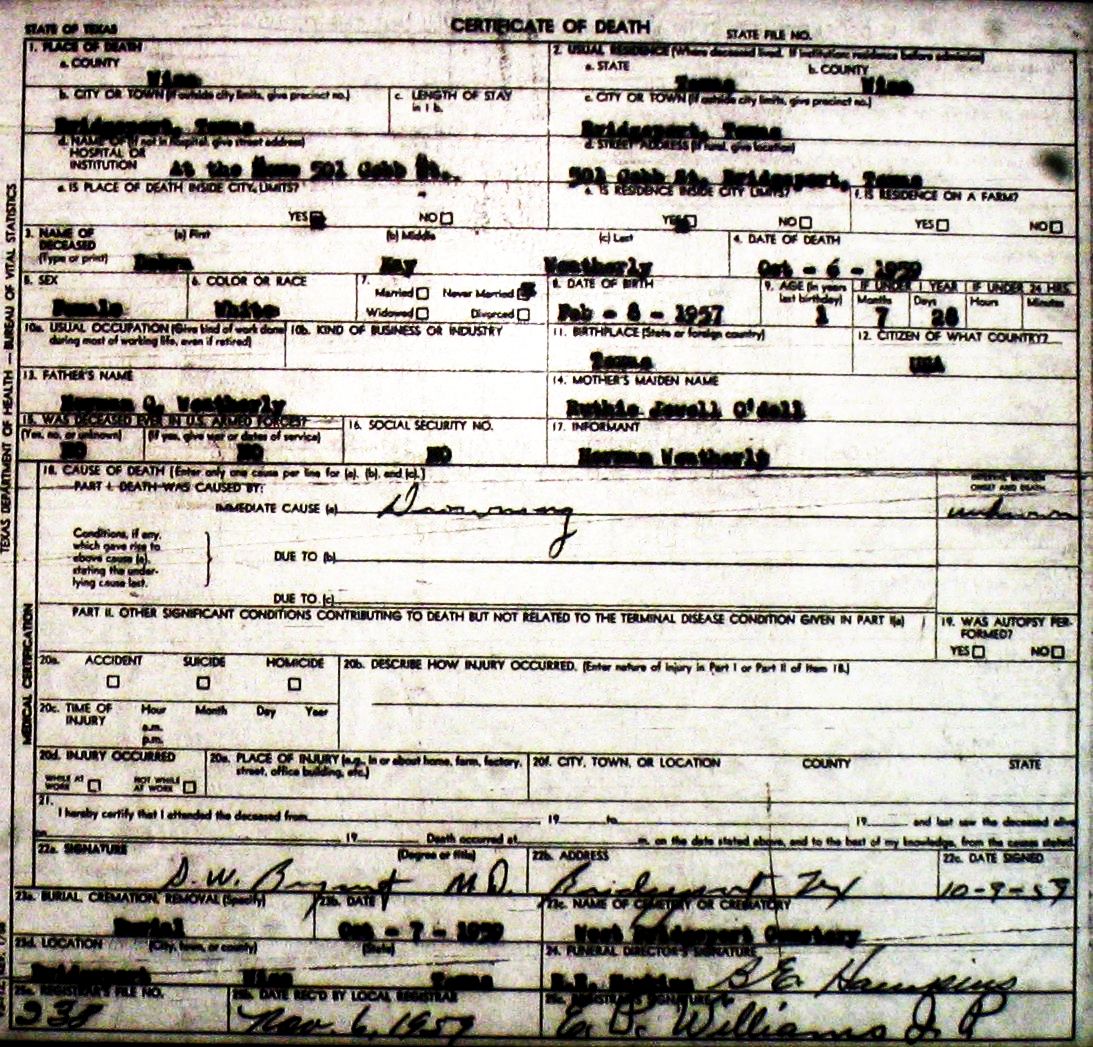 STATE OF TEXAS
CERTIFICATE OF DEATH
STATE FILE NO.
TEXAS DEPARTMENT OF HEALTH — BUREAU OF VITAL STATISTICS
1. PLACE OF DEATH
a. COUNTY
Wise
2. USUAL RESIDENCE (Where deceased lived. If institution: residence before admission)
a. STATE b. COUNTY
Texas Wise
b. CITY OR TOWN (If outside city limits, give precinct no.)
c. LENGTH OF STAY in 1 b.
Bridgeport, Texas
c. CITY OR TOWN (If outside city limits, give precinct no.)
Bridgeport, Texas
d. NAME OF (If not in hospital, give street address)
HOSPITAL OR
INSTITUTION At the Home 501 Cobb St.
d. STREET ADDRESS (If rural, give location)
501 Cobb St, Bridgeport, Texas
e. IS PLACE OF DEATH INSIDE CITY LIMITS?
YES NO
e. IS RESIDENCE INSIDE CITY LIMITS?
YES NO
f. IS RESIDENCE ON A FARM?
YES NO
3. NAME OF DECEASED (Type or print)
(a) First (b) Middle (c) Last
Debra Kay Weatherly
4. DATE OF DEATH
Oct - 6 - 1959
5. SEX
Female
6. COLOR OR RACE
White
7.
Married Never Married
Widowed Divorced
8. DATE OF BIRTH
Feb - 8 - 1957
9. AGE (In years last birthday)
1
IF UNDER 1 YEAR
Months Days
7 28
IF UNDER 24 HRS.
Hours Minutes
10a. USUAL OCCUPATION (Give kind of work done during most of working life, even if retired)
10b. KIND OF BUSINESS OR INDUSTRY
11. BIRTHPLACE (State or foreign country)
Texas
12. CITIZEN OF WHAT COUNTRY?
USA
13. FATHER'S NAME
Herman O. Weatherly
14. MOTHER'S MAIDEN NAME
Ruthie Jewell O'dell
15. WAS DECEASED EVER IN U.S. ARMED FORCES?
(Yes, no, or unknown) (If yes, give war or dates of service)
NO NO
16. SOCIAL SECURITY NO.
NO
17. INFORMANT
Herman Weatherly
MEDICAL CERTIFICATION
18. CAUSE OF DEATH [Enter only one cause per line for (a), (b), and (c).]
PART I. DEATH WAS CAUSED BY:
IMMEDIATE CAUSE (a) Drowning
INTERVAL BETWEEN ONSET AND DEATH
unknown
Conditions, if any,
which gave rise to
above cause (a),
stating the under-
lying cause last.
DUE TO (b)
DUE TO (c)
PART II. OTHER SIGNIFICANT CONDITIONS CONTRIBUTING TO DEATH BUT NOT RELATED TO THE TERMINAL DISEASE CONDITION GIVEN IN PART I(a)
19. WAS AUTOPSY PER-
FORMED?
YES NO
20a. ACCIDENT SUICIDE HOMICIDE
20b. DESCRIBE HOW INJURY OCCURRED. (Enter nature of injury in Part I or Part II of Item 18.)
20c. TIME OF INJURY
Hour Month Day Year
a.m.
p.m.
20d. INJURY OCCURRED
WHILE AT WORK NOT WHILE AT WORK
20e. PLACE OF INJURY (e.g., in or about home, farm, factory, street, office building, etc.)
20f. CITY, TOWN, OR LOCATION COUNTY STATE
21.
I hereby certify that I attended the deceased from 19 to 19 and last saw the deceased alive
on 19 Death occurred at m. on the date stated above, and to the best of my knowledge, from the causes stated.
22a. SIGNATURE (Degree or title)
M.D.
22b. ADDRESS
Bridgeport Tex
22c. DATE SIGNED
10-9-59
23a. BURIAL, CREMATION, REMOVAL (Specify)
Burial
23b. DATE
Oct - 7 - 1959
23c. NAME OF CEMETERY OR CREMATORY
West Bridgeport Cemetery
23d. LOCATION (City, town, or county) (State)
Bridgeport Wise Texas
24. FUNERAL DIRECTOR'S SIGNATURE
B.E. Hawkins
25a. REGISTRAR'S FILE NO.
238
25b. DATE REC'D BY LOCAL REGISTRAR
Nov. 6, 1959
25c. REGISTRAR'S SIGNATURE
E. P. Williams J. P